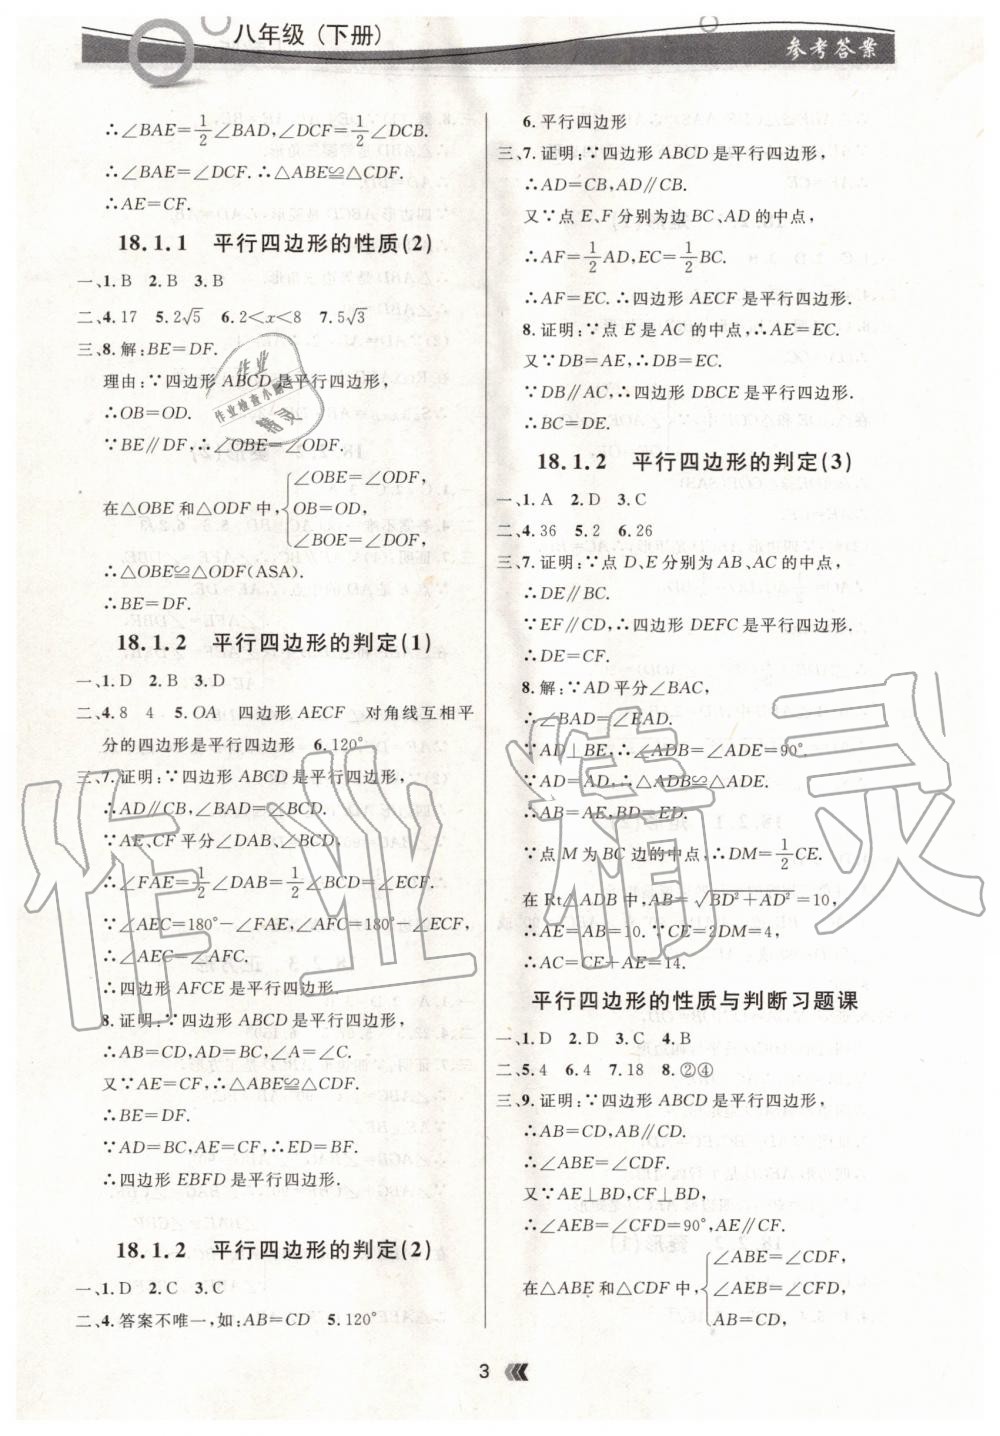 八年级(下册)
参考答案
∴∠BAE=1/2∠BAD,∠DCF=1/2∠DCB.
∴∠BAE=∠DCF.∴△ABE≌△CDF.
∴AE=CF.
18.1.1 平行四边形的性质(2)
一、1.B 2.B 3.B
二、4.17 5.2√5 6.2<x<8 7.5√3
三、8.解:BE=DF.
理由:∵四边形ABCD是平行四边形,
∴OB=OD.
∵BE∥DF,∴∠OBE=∠ODF.
在△OBE和△ODF中,{∠OBE=∠ODF,
OB=OD,
∠BOE=∠DOF,
∴△OBE≌△ODF(ASA).
∴BE=DF.
18.1.2 平行四边形的判定(1)
一、1.D 2.B 3.D
二、4.8 4 5.OA 四边形AECF 对角线互相平
分的四边形是平行四边形 6.120°
三、7.证明:∵四边形ABCD是平行四边形,
∴AD∥CB,∠BAD=∠BCD.
∵AE、CF平分∠DAB、∠BCD,
∴∠FAE=1/2∠DAB=1/2∠BCD=∠ECF.
∵∠AEC=180°-∠FAE,∠AFC=180°-∠ECF,
∴∠AEC=∠AFC.
∴四边形AFCE是平行四边形.
8.证明:∵四边形ABCD是平行四边形,
∴AB=CD,AD=BC,∠A=∠C.
又∵AE=CF,∴△ABE≌△CDF.
∴BE=DF.
∵AD=BC,AE=CF,∴ED=BF.
∴四边形EBFD是平行四边形.
18.1.2 平行四边形的判定(2)
一、1.D 2.C 3.C
二、4.答案不唯一,如:AB=CD 5.120°
6.平行四边形
三、7.证明:∵四边形ABCD是平行四边形,
∴AD=CB,AD∥CB.
又∵点E、F分别为边BC、AD的中点,
∴AF=1/2AD,EC=1/2BC.
∴AF=EC.∴四边形AECF是平行四边形.
8.证明:∵点E是AC的中点,∴AE=EC.
又∵DB=AE,∴DB=EC.
∵DB∥AC,∴四边形DBCE是平行四边形.
∴BC=DE.
18.1.2 平行四边形的判定(3)
一、1.A 2.D 3.C
二、4.36 5.2 6.26
三、7.证明:∵点D、E分别为AB、AC的中点,
∴DE∥BC.
∵EF∥CD,∴四边形DEFC是平行四边形.
∴DE=CF.
8.解:∵AD平分∠BAC,
∴∠BAD=∠EAD.
∵AD⊥BE,∴∠ADB=∠ADE=90°.
∵AD=AD,∴△ADB≌△ADE.
∴AB=AE,BD=ED.
∵点M为BC边的中点,∴DM=1/2CE.
在Rt△ADB中,AB=√(BD²+AD²)=10,
∴AE=AB=10.∵CE=2DM=4,
∴AC=CE+AE=14.
平行四边形的性质与判断习题课
一、1.D 2.D 3.C 4.B
二、5.4 6.4 7.18 8.②④
三、9.证明:∵四边形ABCD是平行四边形,
∴AB=CD,AB∥CD.
∴∠ABE=∠CDF.
又∵AE⊥BD,CF⊥BD,
∴∠AEB=∠CFD=90°,AE∥CF.
在△ABE和△CDF中,{∠ABE=∠CDF,
∠AEB=∠CFD,
AB=CD,
3
作业
作业检查小助手
精灵
作业精灵